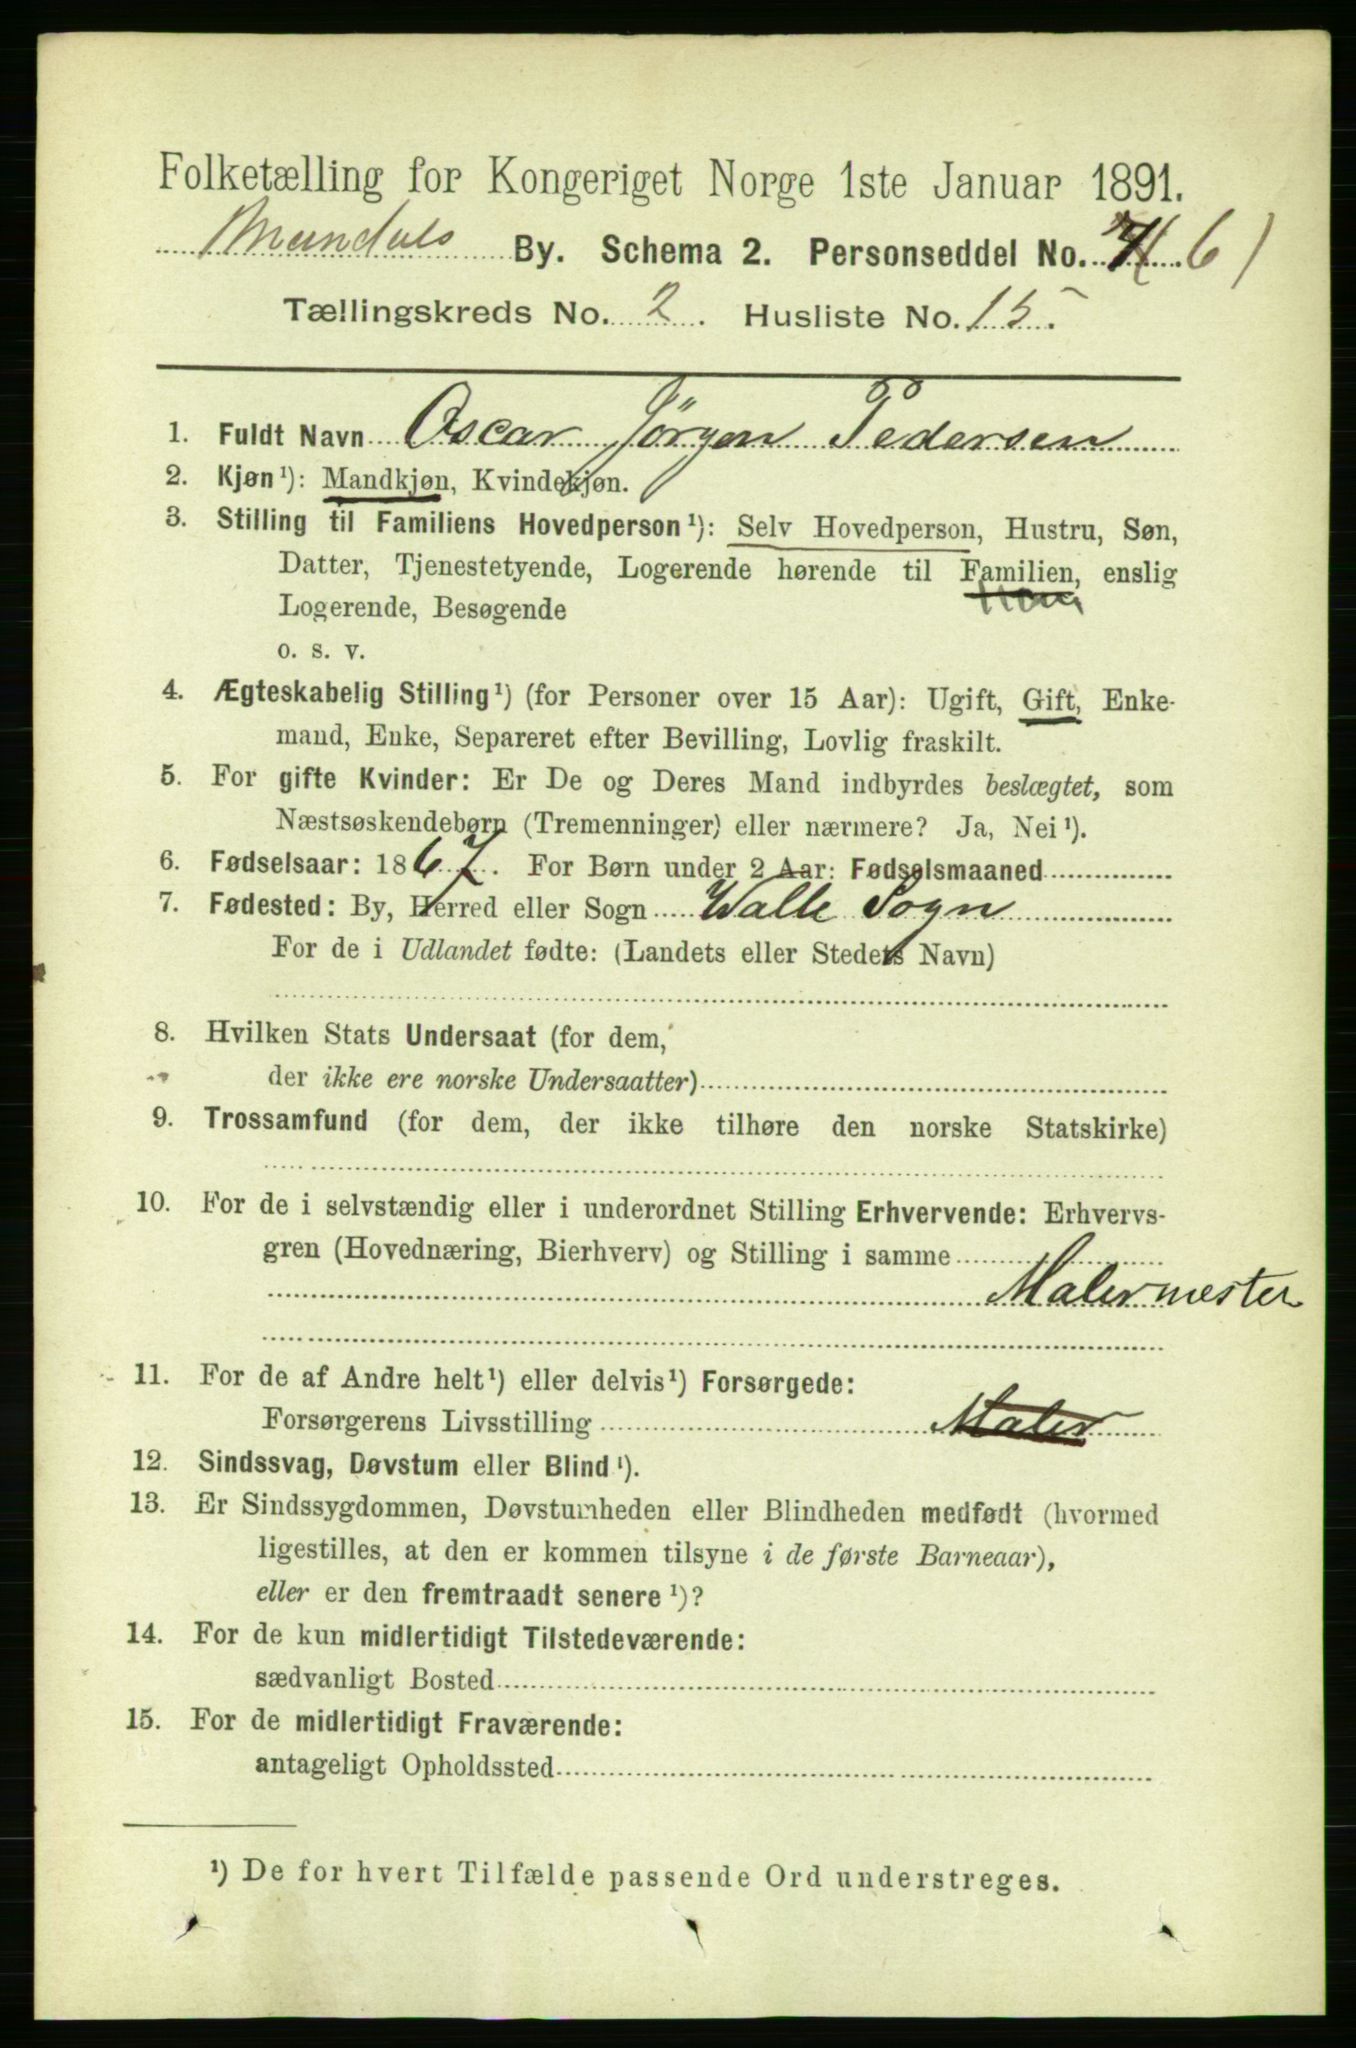 Folketælling for Kongeriget Norge 1ste Januar 1891.
Mandals By. Schema 2. Personseddel No. 61
Tællingskreds No. 2. Husliste No. 15.
1. Fuldt Navn Oscar Jörgen Pedersen
2. Kjøn¹): Mandkjøn, Kvindekjøn.
3. Stilling til Familiens Hovedperson¹): Selv Hovedperson, Hustru, Søn,
Datter, Tjenestetyende, Logerende hørende til Familien, enslig
Logerende, Besøgende
o. s. v.
4. Ægteskabelig Stilling¹) (for Personer over 15 Aar): Ugift, Gift, Enke-
mand, Enke, Separeret efter Bevilling, Lovlig fraskilt.
5. For gifte Kvinder: Er De og Deres Mand indbyrdes beslægtet, som
Næstsøskendebørn (Tremenninger) eller nærmere? Ja, Nei¹).
6. Fødselsaar: 1867. For Børn under 2 Aar: Fødselsmaaned
7. Fødested: By, Herred eller Sogn Walle Sogn
For de i Udlandet fødte: (Landets eller Stedets Navn)
8. Hvilken Stats Undersaat (for dem,
der ikke ere norske Undersaatter)
9. Trossamfund (for dem, der ikke tilhøre den norske Statskirke)
10. For de i selvstændig eller i underordnet Stilling Erhvervende: Erhvervs-
gren (Hovednæring, Bierhverv) og Stilling i samme
Malermester
11. For de af Andre helt¹) eller delvis¹) Forsørgede:
Forsørgerens Livsstilling Maler
12. Sindssvag, Døvstum eller Blind¹).
13. Er Sindssygdommen, Døvstumheden eller Blindheden medfødt (hvormed
ligestilles, at den er kommen tilsyne i de første Barneaar),
eller er den fremtraadt senere¹)?
14. For de kun midlertidigt Tilstedeværende:
sædvanligt Bosted
15. For de midlertidigt Fraværende:
antageligt Opholdssted
¹) De for hvert Tilfælde passende Ord understreges.